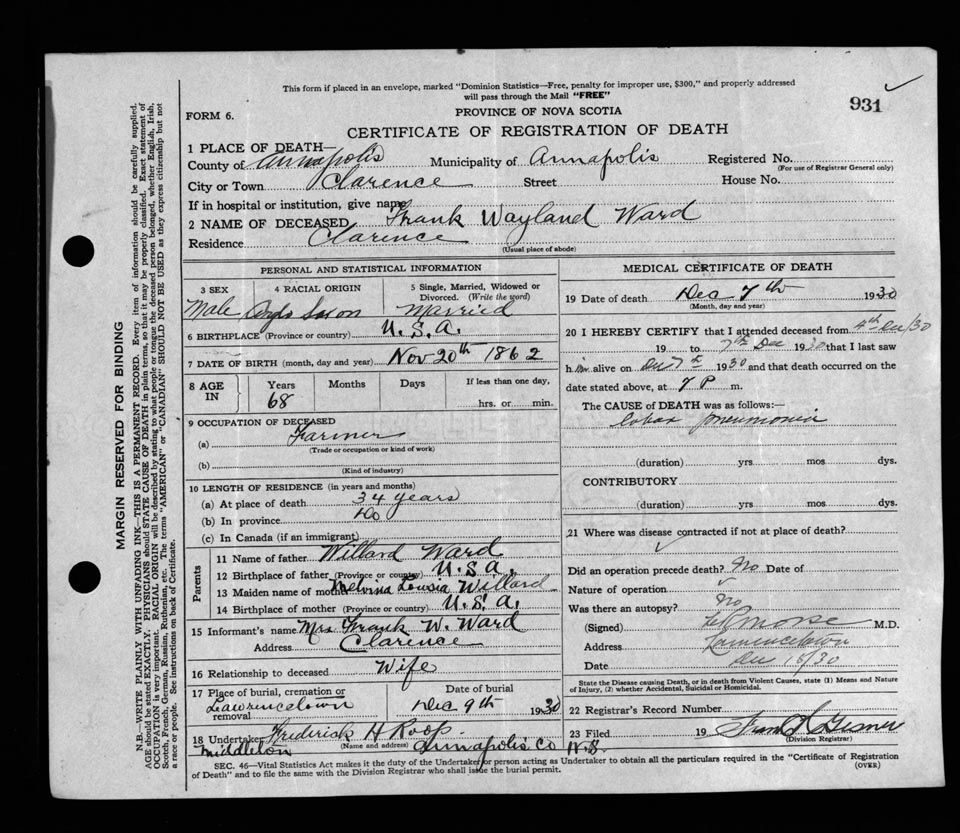 This form if placed in an envelope, marked "Dominion Statistics—Free, penalty for improper use, $300," and properly addressed
will pass through the Mail "FREE"
931
FORM 6.
PROVINCE OF NOVA SCOTIA
CERTIFICATE OF REGISTRATION OF DEATH
1 PLACE OF DEATH—
County of Annapolis Municipality of Annapolis Registered No.
(For use of Registrar General only)
City or Town Clarence Street House No.
If in hospital or institution, give name
2 NAME OF DECEASED Frank Wayland Ward
Residence Clarence
(Usual place of abode)
PERSONAL AND STATISTICAL INFORMATION
3 SEX 4 RACIAL ORIGIN 5 Single, Married, Widowed or Divorced. (Write the word)
Male Anglo Saxon Married
6 BIRTHPLACE (Province or country) U.S.A.
7 DATE OF BIRTH (month, day and year) Nov 20th 1862
8 AGE IN Years Months Days If less than one day,
68 hrs. or min.
9 OCCUPATION OF DECEASED
(a) Farmer
(Trade or occupation or kind of work)
(b)
(Kind of industry)
10 LENGTH OF RESIDENCE (in years and months)
(a) At place of death 34 years
(b) In province Do
(c) In Canada (if an immigrant)
Parents
11 Name of father Willard Ward
12 Birthplace of father (Province or country) U.S.A.
13 Maiden name of mother Melvina Lousia Willard
14 Birthplace of mother (Province or country) U.S.A.
15 Informant's name Mrs Frank W. Ward
Address Clarence
16 Relationship to deceased Wife
17 Place of burial, cremation or removal Date of burial
Lawrencetown Dec 9th 1930
18 Undertaker Frederick H Roop
(Name and address)
Middleton Annapolis Co N.S.
MEDICAL CERTIFICATE OF DEATH
19 Date of death Dec 7th 1930
(Month, day and year)
20 I HEREBY CERTIFY that I attended deceased from 4th Dec/30
19 to 7th Dec 1930 that I last saw
h im alive on Dec 7th 1930 and that death occurred on the
date stated above, at 7 P m.
The CAUSE of DEATH was as follows:—
Lobar pneumonia
(duration) yrs mos dys.
CONTRIBUTORY
(duration) yrs. mos. dys.
21 Where was disease contracted if not at place of death?
Did an operation precede death? No Date of
Nature of operation
Was there an autopsy? No
(Signed) Morse M.D.
Address Lawrencetown
Date Dec /30
State the Disease causing Death, or in death from Violent Causes, state (1) Means and Nature
of Injury, (2) whether Accidental, Suicidal or Homicidal.
22 Registrar's Record Number
23 Filed 19 Frank Gesner
(Division Registrar)
SEC. 46—Vital Statistics Act makes it the duty of the Undertaker or person acting as Undertaker to obtain all the particulars required in the "Certificate of Registration
of Death" and to file the same with the Division Registrar who shall issue the burial permit.
(OVER)
MARGIN RESERVED FOR BINDING
N.B.—WRITE PLAINLY WITH UNFADING INK—THIS IS A PERMANENT RECORD. Every item of information should be carefully supplied.
AGE should be stated EXACTLY. PHYSICIANS should STATE CAUSE OF DEATH in plain terms, so that it may be properly classified. Exact statement of
OCCUPATION is very important. RACIAL ORIGIN will be described by stating to what people or tongue the deceased person belonged, whether English, Irish,
Scotch, French, German, Russian, Ruthenian, etc. The terms "AMERICAN" or "CANADIAN" SHOULD NOT BE USED as they express citizenship but not
a race or people. See instructions on back of Certificate.